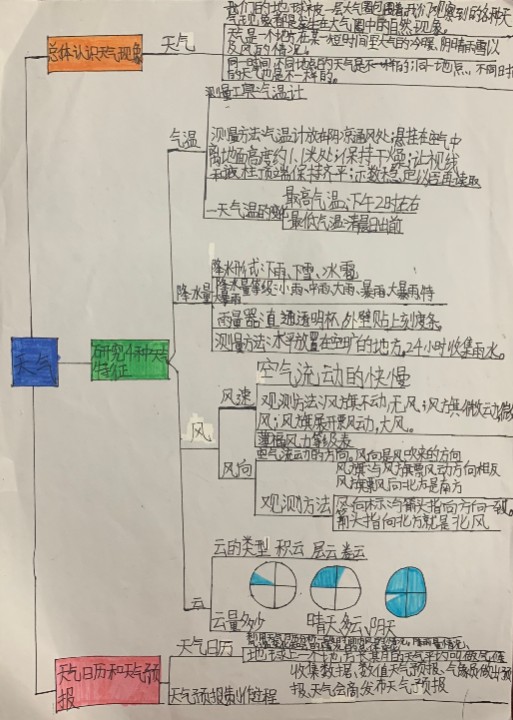 我们的地球被一层大气圈包围着我们观察到的各种天
气现象都是发生在大气圈中的自然现象。
总体认识天气现象
天气
天气是一个地方在某一短时间里大气的冷暖、阴晴雨雪以
及风的情况。
同一时间不同地点的天气是不一样的;同一地点、不同时
的天气也是不一样的。
测量工具气温计
气温
测量方法:气温计放在阴凉通风处;悬挂在空气中
离地面高度约1.1米处;保持下
液柱顶端保持齐平;示数稳定以后再读取
一天气温的变化
最高气温:下午2时左右
最低气温:清晨日出前
降水量
降水形式:下雨、下雪、冰雹
降水量等级:小雨、中雨、大雨、暴雨、大暴雨、特
大暴雨
雨量器:直通透明杯、外壁贴上刻度条
测量方法:水平放置在空旷的地方,24小时收集雨水。
天气
研究4种天气
特征
风
风速
空气流动的快慢
观测方法:风方旗不动,无风;风方旗微微动微
风;风方旗展开飘动,大风。
蒲福风力等级表
风向
空气流动的方向。风向是风吹来的方向
观测方法
风方旗:与风方旗飘动方向相反
风方旗飘向北方是南方
风向标:与箭头指向方向一致
箭头指向北方就是北风
云
云的类型 积云 层云 卷云
云量多少
晴天、多云、阴天
天气日历和天气预
报
天气日历
天气预报制作过程
收集数据、数值天气预报、气象员做出预
报、天气会商、发布天气预报